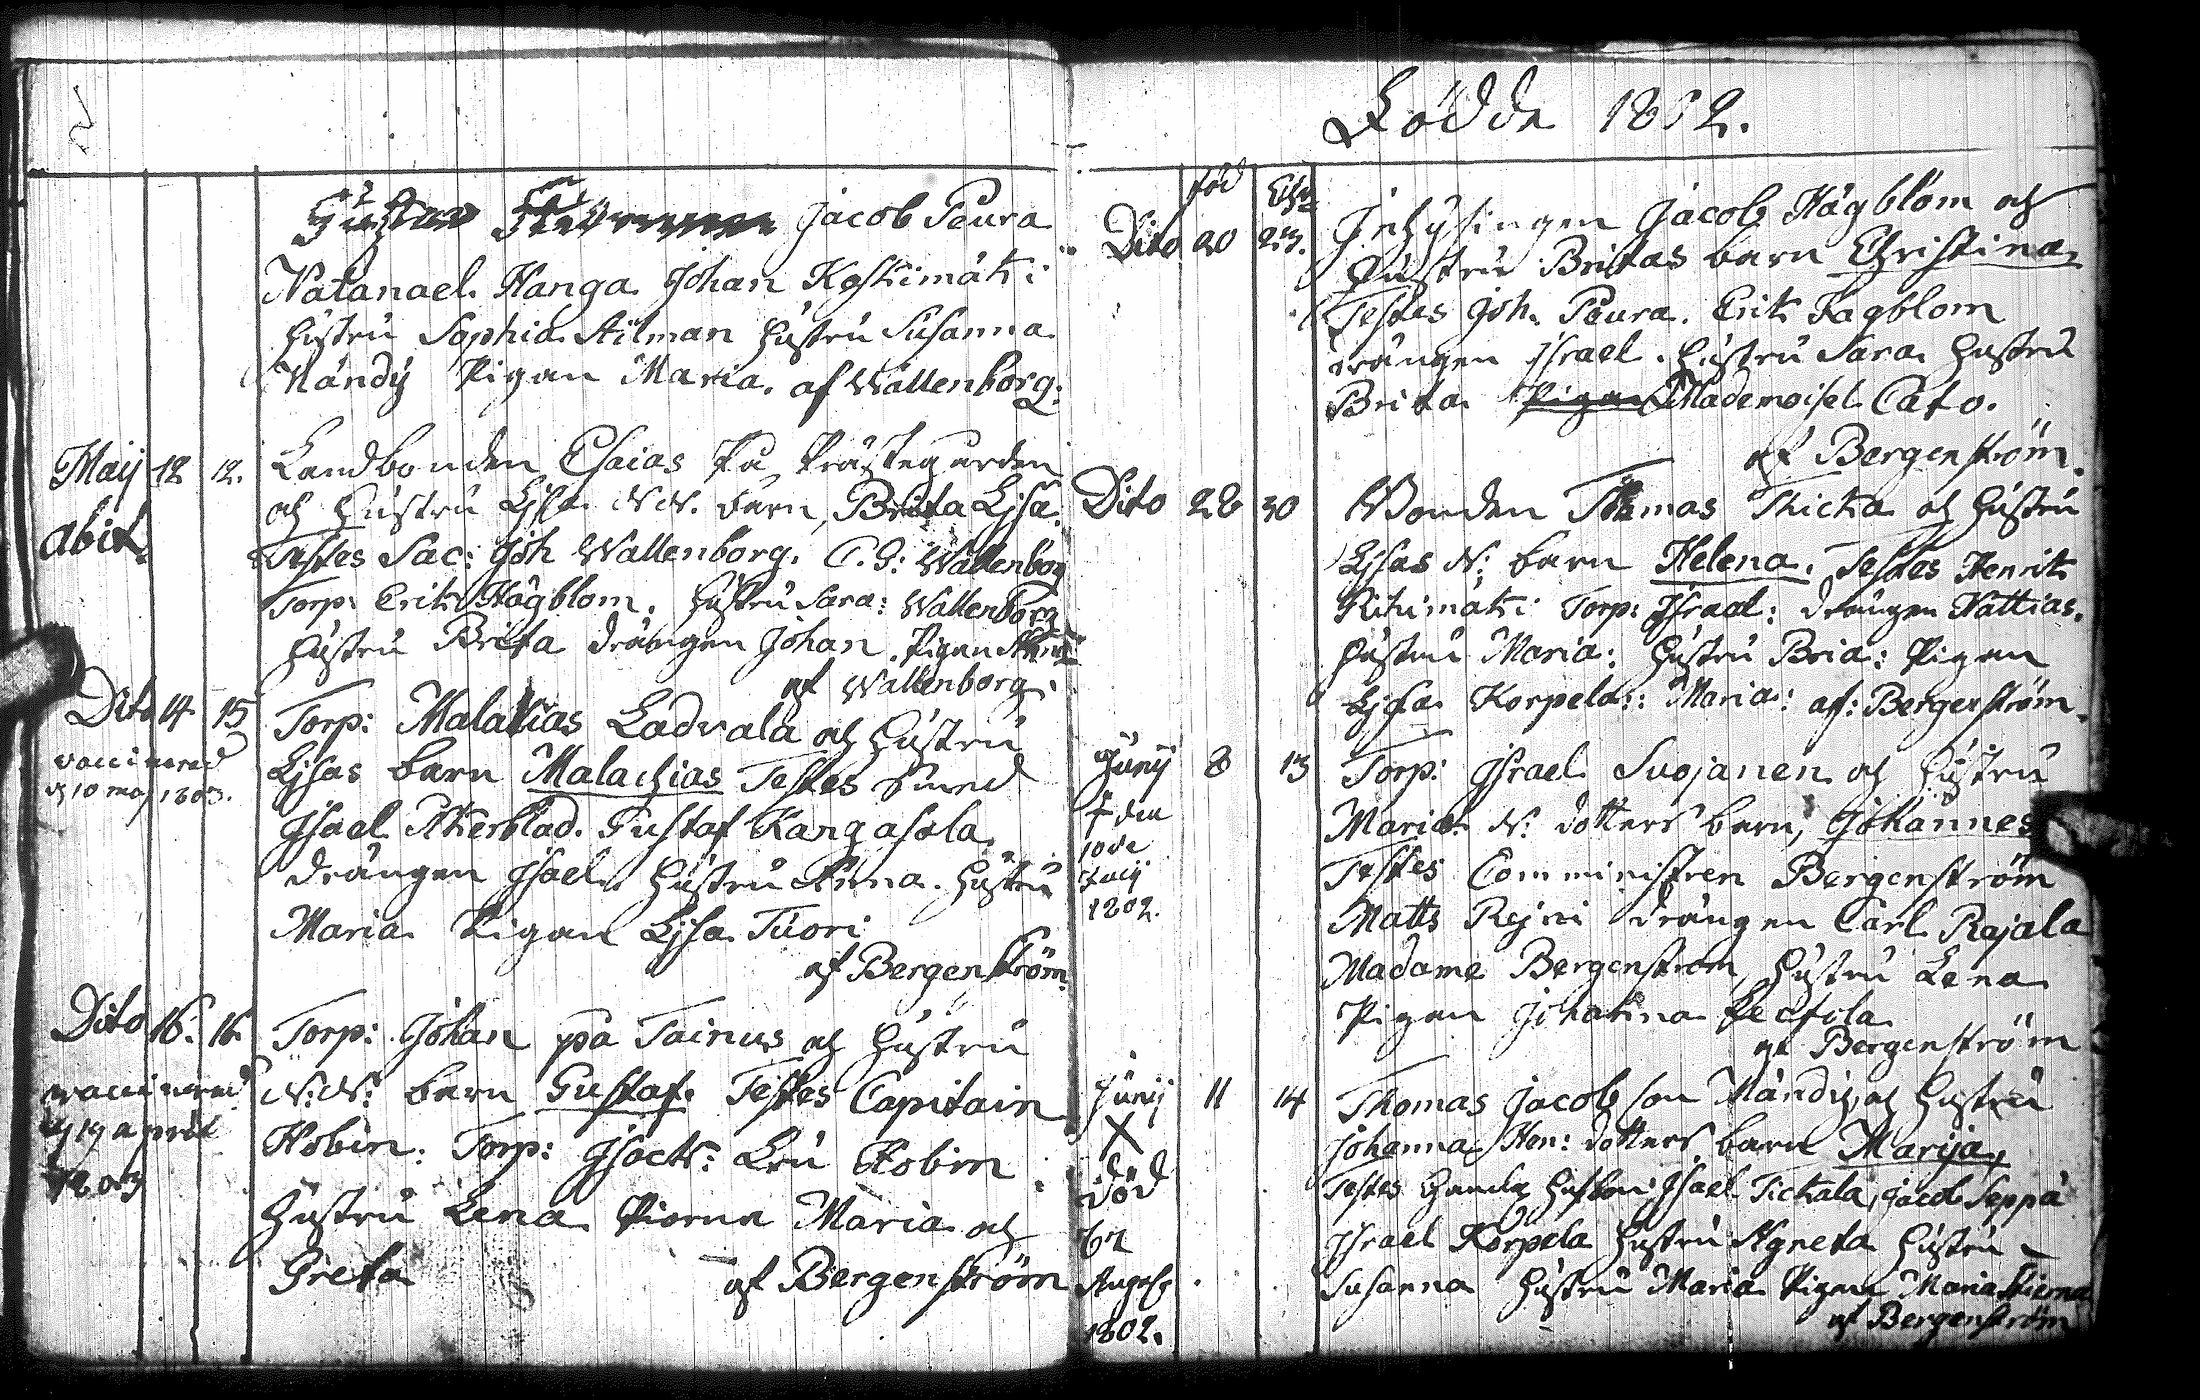 Jacob Peura
Natanael Hanga Johan Koskimäki
Hustru Sophia Ailman Hustru Susanna
Mändÿ Pigan Maria. af Wallenborg:
Maij 12 12. Landbonden Esaias På Prästegården
abit. och Hustru Lisa N.N. barn, Brita Lisa.
Testes Sac: Joh Wallenborg. C.G: Wallenborg
Torp: Erik Hägblom. Hustru Sara: Wallenborg
Hustru Brita drängen Johan. Pigan
af Wallenborg.
Dito 14 15 Torp: Malakias Ladvala och Hustru
vaccinerad Lisas barn Malachias Testes Smed
d 10 maj 1803. Isael Åkerblad. Gustaf Kangasola
drängen Isael. Hustru Anna. Hustru
Maria Pigan Lisa Tuori
af Bergenström.
Dito 16. 16. Torp: Johan på Tainus och Hustru
vaccinerad N:N: barn Gustaf. Testes Capitain
d 19 april Hobin: Torp: Isack: Lru Hobin
1803 Hustru Lena Piorna Maria och
Greta af Bergenström
Födde 1802.
föd
Dito 20 23. Inhysingen Jacob Hägblom och
Hustru Britas barn Christina,
Testes Joh. Peura. Erik Hagblom
drängen Israel. Hustru Sara Hustru
Brita Pigan Mademoisel Cato.
af Bergenström.
Dito 28 30 Bonden Thomas Thicka och Hustru
Lisas N: barn Helena. Testes Henrik
Rihimäki Torp: Israel: drängen Mattias.
Hustru Maria: Hustru Bria: Pigan
Lisa Korpela:: Maria: af: Bergenström.
Junij 8 13 Torp: Israel Suojanen och Hustru
† den Maria N: dotters barn, Johannes
10de Testes Comministren Bergenström
Julij Matts Rejni drängen Carl Rajala
1802. Madame Bergenström, Hustru Lena
Pigan Johanna
af Bergenström
Junij 11 14 Thomas Jacobson Mändÿ, och Hustru
X Johanna Hen: dotters barn Marija,
död Testes Isael Tickala, Jacob Seppä
Israel Korpela Hustru Agneta Hustru
August Susanna Hustru Maria Pigan Maria
1802. af Bergenström